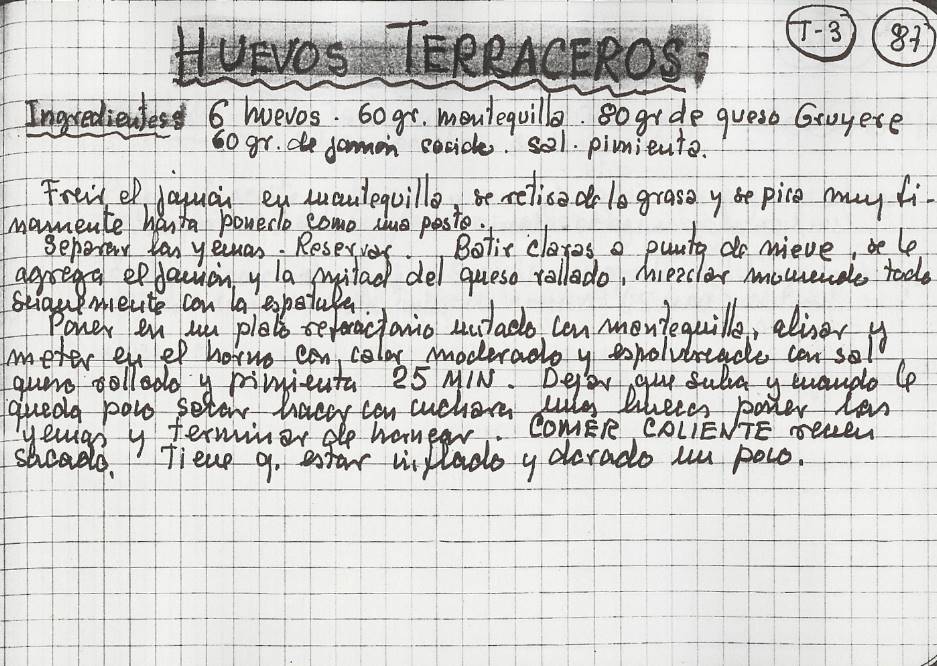 HUEVOS TERRACEROS.
T-3
87
Ingredientes: 6 huevos. 60 gr. mantequilla. 80 gr de queso Gruyere
60 gr. de jamón cocido. sal. pimienta.
Freir el jamón en mantequilla, se retira de la grasa y se pica muy fi-
namente hasta ponerlo como una pasta.
Separar las yemas. Reservar. Batir claras a punto de nieve, se le
agrega el jamón y la mitad del queso rallado, mezclar moviendo todo
suavemente con la espatula.
Poner en un plato refractario untado con mantequilla, alisar y
meter en el horno con calor moderado y espolvoreado con sal
queso rallado y pimienta 25 MIN. Dejar que suba y cuando le
queda poco sacar hacer con cuchara unos huecos poner las
yemas y terminar de hornear. COMER CALIENTE recien
sacado. Tiene q. estar inflado y dorado un poco.